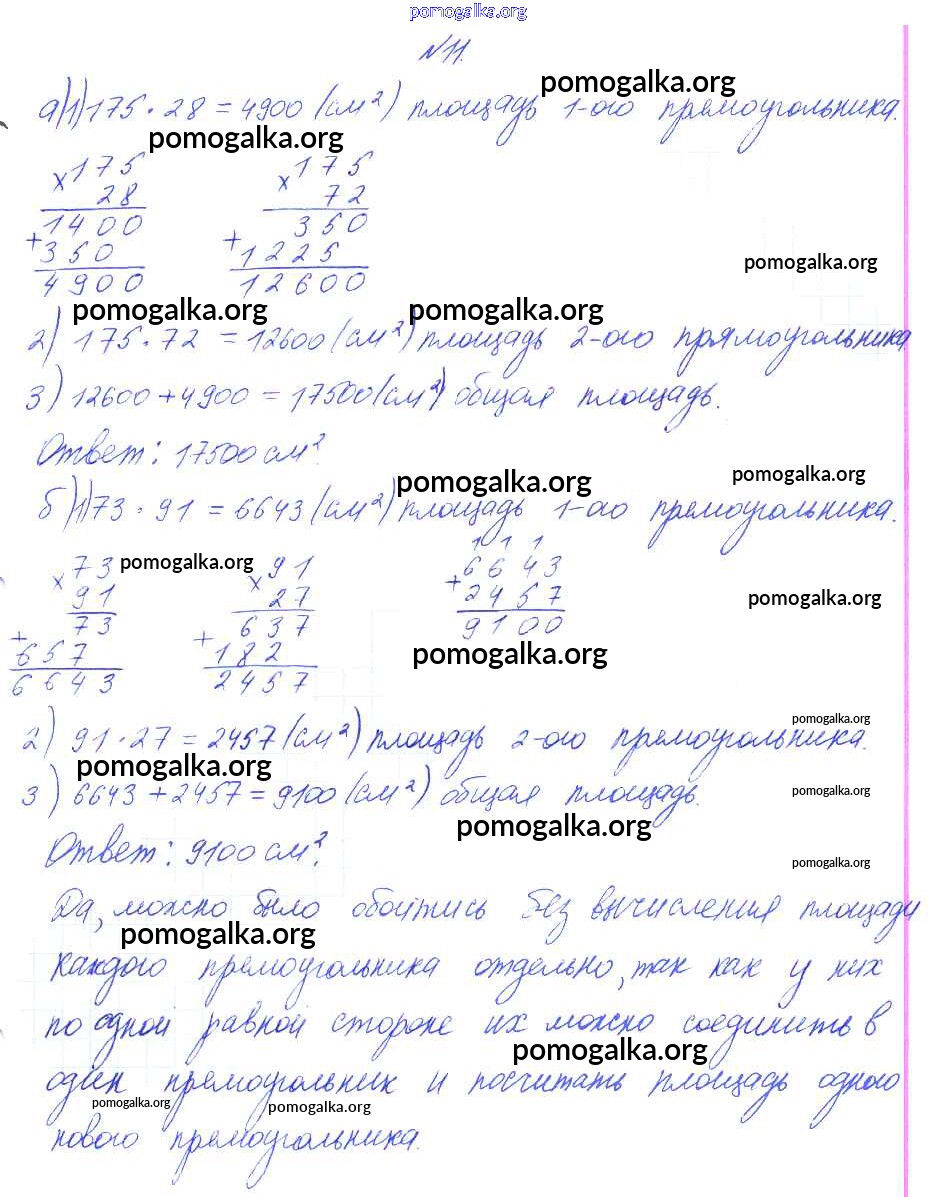 pomogalka.org
№11.
pomogalka.org
а)1) 175 · 28 = 4900 (см²) площадь 1-ого прямоугольника.
pomogalka.org
× 175 × 175
28 72
1400 350
+ 350 + 1225
4900 12600
pomogalka.org
pomogalka.org pomogalka.org
2) 175 · 72 = 12600 (см²) площадь 2-ого прямоугольника
3) 12600 + 4900 = 17500 (см²) общая площадь.
Ответ: 17500 см².
pomogalka.org pomogalka.org
б)1) 73 · 91 = 6643 (см²) площадь 1-ого прямоугольника.
1 1 1
× 73 pomogalka.org × 91 + 6643
91 27 2457
73 637 9100
pomogalka.org
+ 657 + 182
pomogalka.org
6643 2457
pomogalka.org
2) 91 · 27 = 2457 (см²) площадь 2-ого прямоугольника.
pomogalka.org
3) 6643 + 2457 = 9100 (см²) общая площадь.
pomogalka.org
pomogalka.org
Ответ: 9100 см².
pomogalka.org
Да, можно было обойтись без вычисления площади
pomogalka.org
каждого прямоугольника отдельно, так как у них
по одной равной стороне их можно соединить в
pomogalka.org
один прямоугольник и посчитать площадь одного
pomogalka.org pomogalka.org
нового прямоугольника.